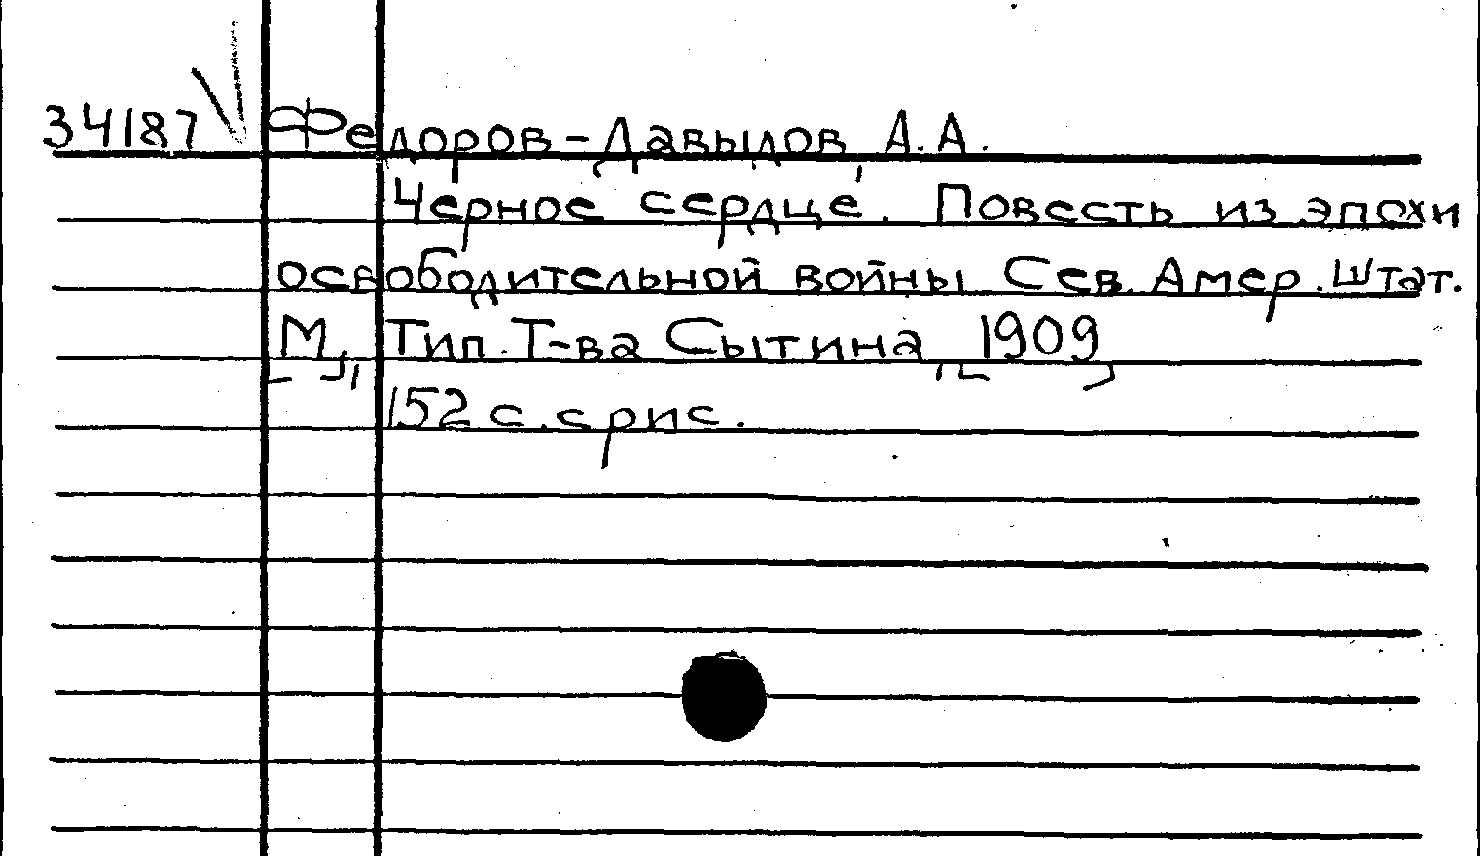 34187 Федоров-Давыдов, А.А.
Черное сердце. Повесть из эпохи
освободительной войны Сев. Амер. Штат.
М., Тип. Т-ва Сытина, [1909]
152 с. с рис.